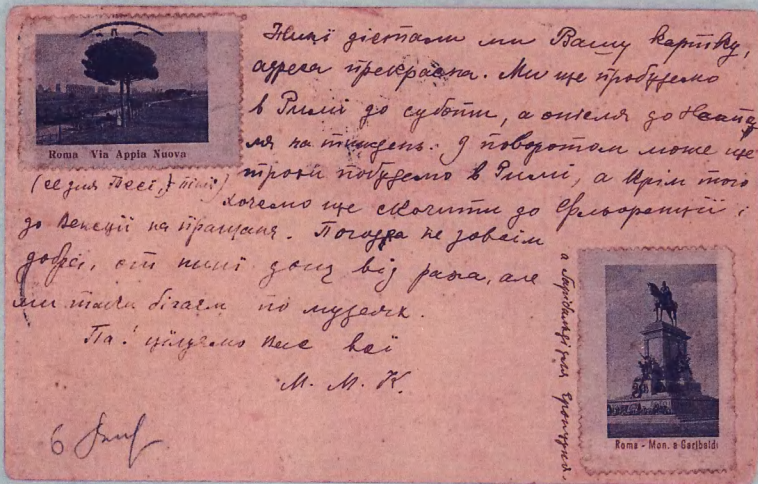 Нині дістали ми Вашу картку,
адреса прекрасна. Ми ще пробудемо
в Римі до суботи, а опісля до Неапо
ля на тиждень. З поворотом може ще
трохи побудемо в Римі, а крім того
хочемо ще скочити до Фльоренції і
до Венеції на пращаня. Погода не зовсім
добра, от нині дощ від рана, але
ми таки бігаєм по музеях.
Па! цілуємо Вас всі
М. М. К.
6
Roma Via Appia Nuova
Roma - Mon. a Garibaldi